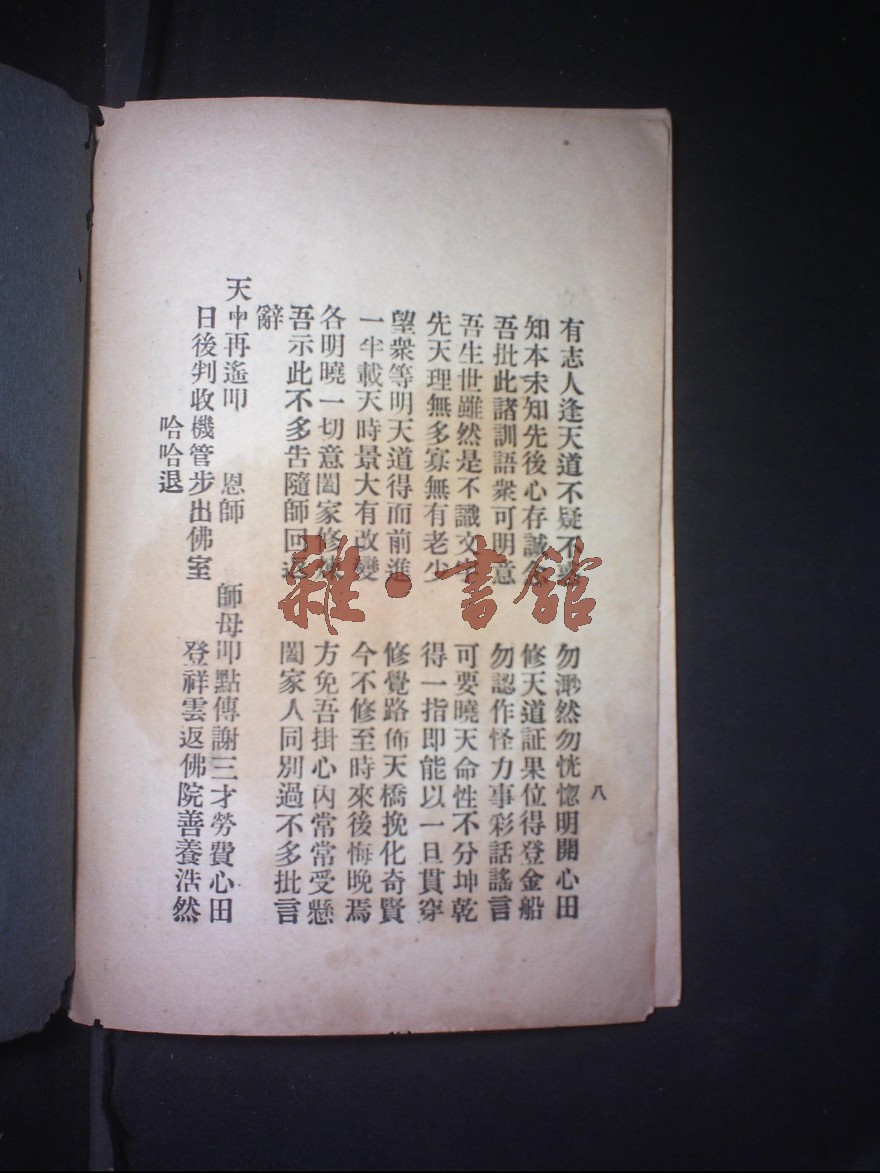 有志人逢天道不疑不惑　勿渺然勿恍惚明開心田
知本末知先後心存誠念　修天道証果位得登金船
吾批此諸訓語衆可明意　勿認作怪力事彩話謠言
吾生世雖然是不識文字　可要曉天命性不分坤乾
先天理無多寡無有老少　得一指即能以一旦貫穿
望衆等明天道得而前進　修覺路佈天橋挽化奇賢
一半載天時景大有改變　今不修至時來後悔晚焉
各明曉一切意闔家修煉　方免吾掛心內常常受懸
吾示此不多告隨師回返　闔家人同別過不多批言
辭
天中再遙叩　恩師　師母叩點傳謝三才勞費心田
日後判收機管步出佛室　登祥雲返佛院善養浩然
哈哈退
八
雜·書館